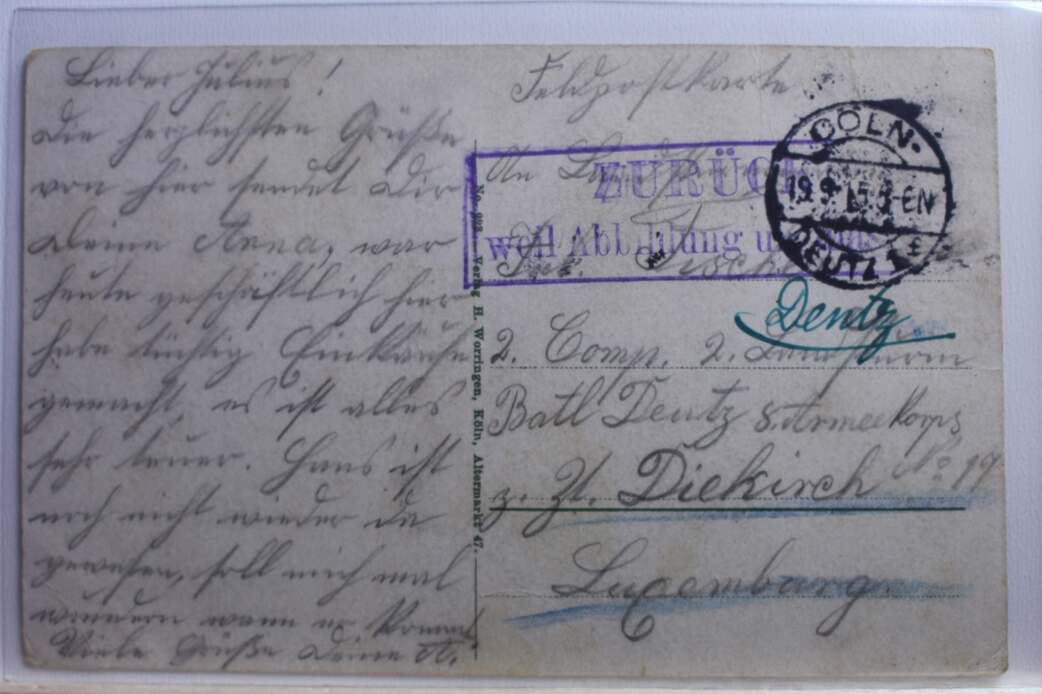 Lieber Julius!
Die herzlichsten Grüße
von hier sendet Dir
Deine Anna, war
heute geschäftlich hier
habe tüchtig Einkäufe
gemacht, es ist alles
sehr teuer. Hans ist
noch nicht wieder da
gewesen, soll mich mal
wundern wann er kommt
Viele Grüße Deine A.
No. Verlag H. Worringen, Köln, Altermarkt 47.
Feldpostkarte
CÖLN-
19.9.15.
DEUTZ 1
An
ZURÜCK
weil Abbildung
Deutz
2. Comp. 2. Landsturm
Batl Deutz 8. Armeekorps
z. Zt. Diekirch No 19
Luxemburg.